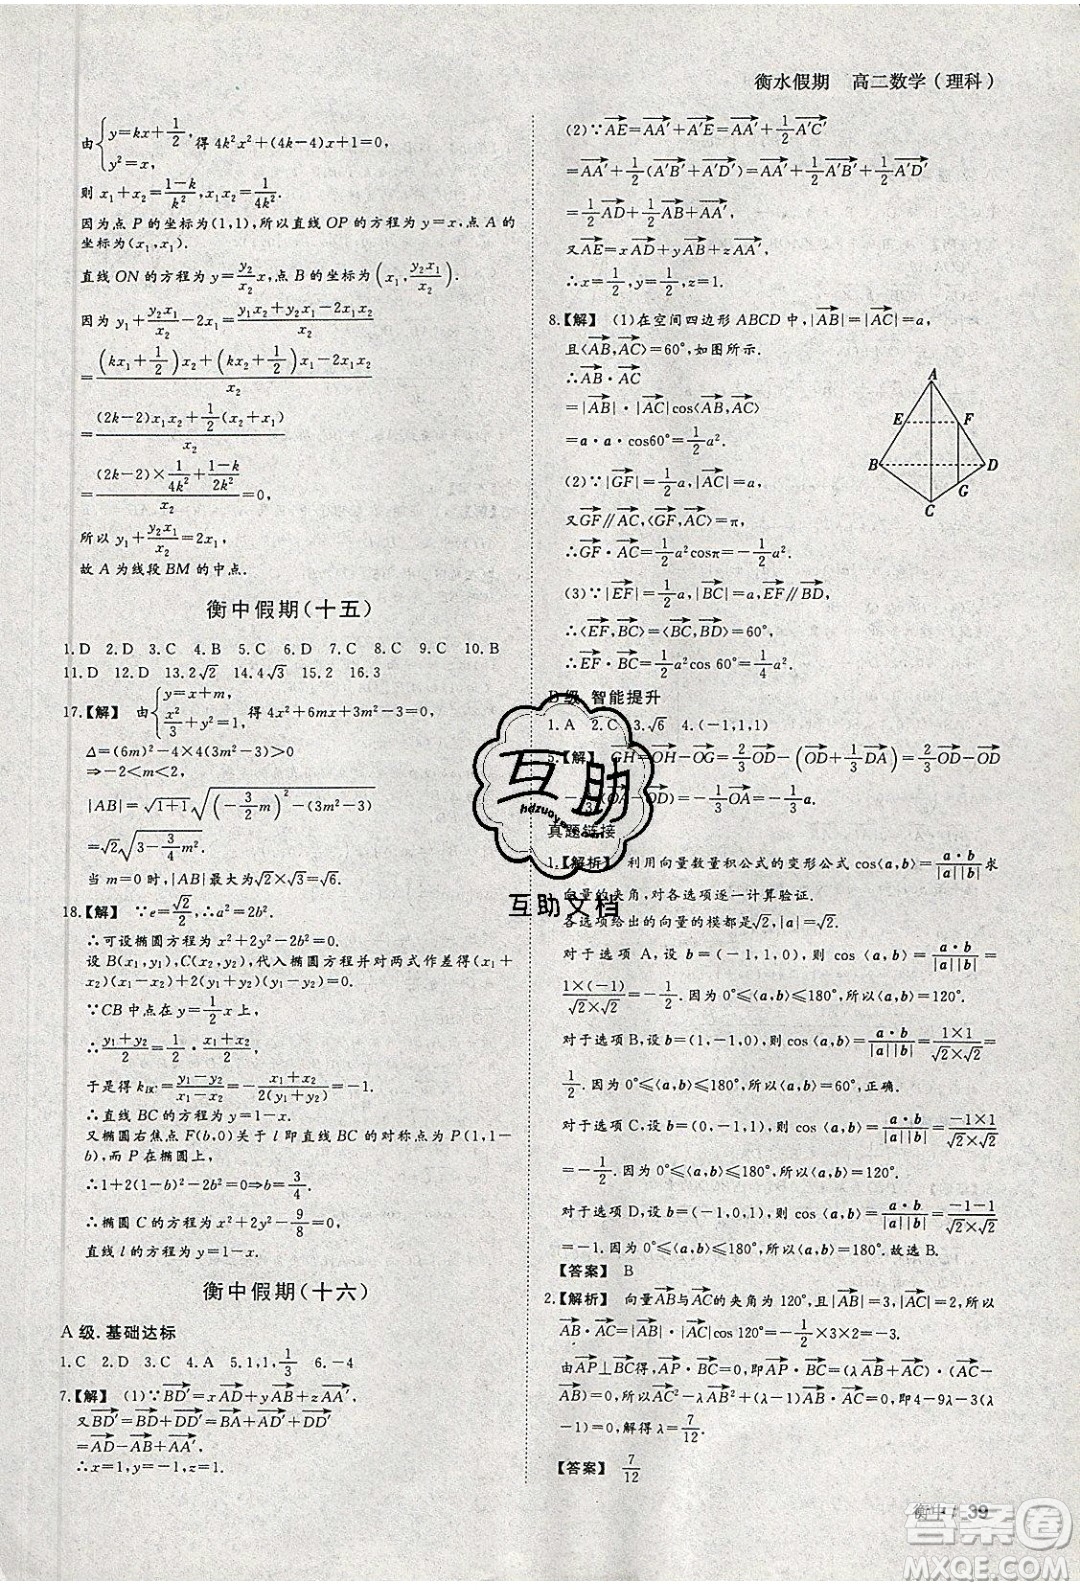 衡水假期　高二数学(理科)
由{y=kx+1/2, y²=x, 得 4k²x²+(4k-4)x+1=0,
则 x₁+x₂=(1-k)/k², x₁x₂=1/(4k²).
因为点 P 的坐标为(1,1),所以直线 OP 的方程为 y=x,点 A 的
坐标为(x₁,x₁).
直线 ON 的方程为 y=(y₂/x₂)x,点 B 的坐标为(x₁, y₂x₁/x₂).
因为 y₁+y₂x₁/x₂-2x₁=(y₁x₂+y₂x₁-2x₁x₂)/x₂
=((kx₁+1/2)x₂+(kx₂+1/2)x₁-2x₁x₂)/x₂
=((2k-2)x₁x₂+1/2(x₂+x₁))/x₂
=((2k-2)×1/(4k²)+(1-k)/(2k²))/x₂=0,
所以 y₁+y₂x₁/x₂=2x₁.
故 A 为线段 BM 的中点.
衡中假期(十五)
1.D 2.D 3.C 4.B 5.C 6.D 7.D 8.C 9.C 10.B
11.D 12.D 13.2√2 14.4√3 15.2 16.3
17.【解】 由{y=x+m, x²/3+y²=1, 得 4x²+6mx+3m²-3=0,
Δ=(6m)²-4×4(3m²-3)>0
⇒-2<m<2.
|AB|=√(1+1)√((-3/2 m)²-(3m²-3))
=√2√(3-3/4 m²).
当 m=0 时,|AB|最大为√2×√3=√6.
18.【解】 ∵e=√2/2,∴a²=2b².
∴可设椭圆方程为 x²+2y²-2b²=0.
设 B(x₁,y₁),C(x₂,y₂),代入椭圆方程并对两式作差得(x₁+
x₂)(x₁-x₂)+2(y₁+y₂)(y₁-y₂)=0.
∵CB 中点在 y=1/2 x 上,
∴(y₁+y₂)/2=1/2·(x₁+x₂)/2.
于是得 k_BC=(y₁-y₂)/(x₁-x₂)=-(x₁+x₂)/(2(y₁+y₂))=-1.
∴直线 BC 的方程为 y=1-x.
又椭圆右焦点 F(b,0)关于 l 即直线 BC 的对称点为 P(1,1-
b),而 P 在椭圆上.
∴1+2(1-b)²-2b²=0⇒b=3/4.
∴椭圆 C 的方程为 x²+2y²-9/8=0,
直线 l 的方程为 y=1-x.
衡中假期(十六)
A 级.基础达标
1.C 2.D 3.C 4.A 5.1,1,1/3 6.-4
7.【解】 (1)∵BD′→=xAD→+yAB→+zAA′→,
又BD′→=BD→+DD′→=BA→+AD→+DD′→
=AD→-AB→+AA′→,
∴x=1,y=-1,z=1.
(2)∵AE→=AA′→+A′E→=AA′→+1/2 A′C′→
=AA′→+1/2(A′B′→+A′D′→)=AA′→+1/2 A′B′→+1/2 A′D′→
=1/2 AD→+1/2 AB→+AA′→,
又AE→=xAD→+yAB→+zAA′→,
∴x=1/2,y=1/2,z=1.
8.【解】 (1)在空间四边形 ABCD 中,|AB→|=|AC→|=a,
且⟨AB→,AC→⟩=60°,如图所示.
∴AB→·AC→
=|AB→|·|AC→|cos⟨AB→,AC→⟩
=a·a·cos60°=1/2 a².
(2)∵|GF→|=1/2 a,|AC→|=a,
又GF→∥AC→,⟨GF→,AC→⟩=π,
∴GF→·AC→=1/2 a²cosπ=-1/2 a².
(3)∵|EF→|=1/2 a,|BC→|=a,EF→∥BD→,
∴⟨EF→,BC→⟩=⟨BC→,BD→⟩=60°.
∴EF→·BC→=1/2 a²cos 60°=1/4 a².
A
E
F
B
D
G
C
级 智能提升
1.A 2.C 3.√6 4.(-1,1,1)
5.【解】 GH→=OH→-OG→=2/3 OD→-(OD→+1/3 DA→)=2/3 OD→-OD→
(OA→-OD→)=-1/3 OA→=-1/3 a.
真题链接
1.【解析】 利用向量数量积公式的变形公式 cos⟨a,b⟩=a·b/(|a||b|)求
向量的夹角,对各选项逐一计算验证.
各选项给出的向量的模都是√2,|a|=√2.
对于选项 A,设 b=(-1,1,0),则 cos ⟨a,b⟩=a·b/(|a||b|)=
1×(-1)/(√2×√2)=-1/2.因为 0°≤⟨a,b⟩≤180°,所以⟨a,b⟩=120°.
对于选项 B,设 b=(1,-1,0),则 cos ⟨a,b⟩=a·b/(|a||b|)=1×1/(√2×√2)=
1/2.因为 0°≤⟨a,b⟩≤180°,所以⟨a,b⟩=60°,正确.
对于选项 C,设 b=(0,-1,1),则 cos ⟨a,b⟩=a·b/(|a||b|)=-1×1/(√2×√2)
=-1/2.因为 0°≤⟨a,b⟩≤180°,所以⟨a,b⟩=120°.
对于选项 D,设 b=(-1,0,1),则 cos ⟨a,b⟩=a·b/(|a||b|)=-1-1/(√2×√2)
=-1.因为 0°≤⟨a,b⟩≤180°,所以⟨a,b⟩=180°.故选 B.
【答案】 B
2.【解析】 向量AB→与AC→的夹角为 120°,且|AB→|=3,|AC→|=2,所以
AB→·AC→=|AB→|·|AC→|cos 120°=-1/2×3×2=-3.
由AP→⊥BC→得,AP→·BC→=0,即AP→·BC→=(λAB→+AC→)·(AC→-
AB→)=0,所以AC→²-λAB→²+(λ-1)AC→·AB→=0,即4-9λ-3(λ
-1)=0,解得 λ=7/12.
【答案】 7/12
互助
hdzuoye.com
互助文档
衡中
39
答案圈
MXQE.COM